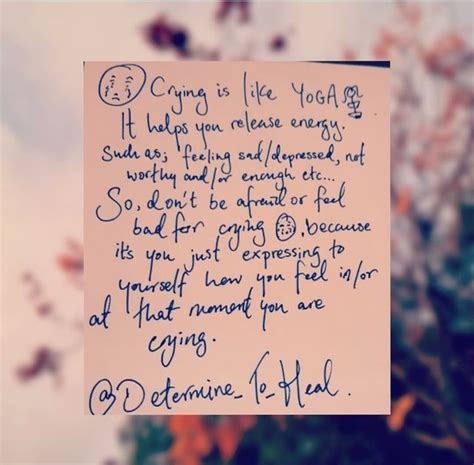 Crying is like YOGA
It helps you release energy.
Such as; feeling sad/depressed, not
worthy and/or enough etc...
So, don't be afraid or feel
bad for crying , because
it's you just expressing to
yourself how you feel in/or
at that moment you are
crying.
@Determine_To_Heal.